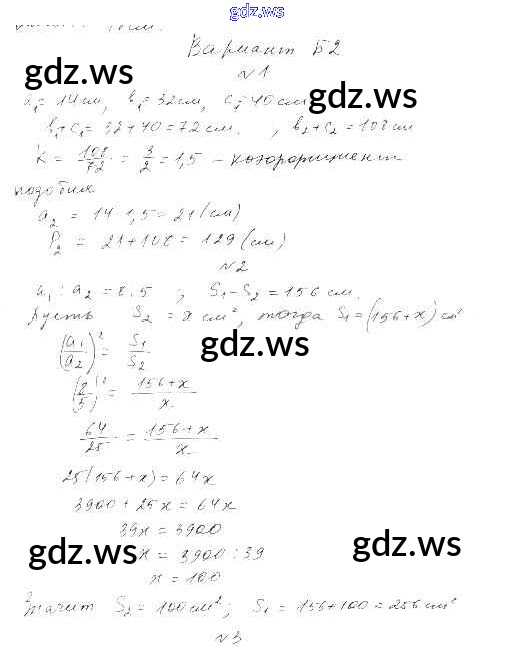 gdz.ws
Вариант Б2
№1
a₁ = 14 см, b₁ = 32 см, c₁ = 40 см
b₁ + c₁ = 32 + 40 = 72 см. , b₂ + c₂ = 108 см
K = 108/72 = 3/2 = 1,5 – коэффициент
подобия
a₂ = 14 · 1,5 = 21 (см)
P₂ = 21 + 108 = 129 (см)
№2
a₁ : a₂ = 8 : 5 ; S₁ – S₂ = 156 см.
Пусть S₂ = x см², тогда S₁ = (156 + x) см²
(a₁/a₂)² = S₁/S₂
(8/5)² = (156 + x)/x
64/25 = (156 + x)/x
25(156 + x) = 64x
3900 + 25x = 64x
39x = 3900
x = 3900 : 39
x = 100
Значит S₂ = 100 см² ; S₁ = 156 + 100 = 256 см²
№3
gdz.ws
gdz.ws
gdz.ws
gdz.ws
gdz.ws